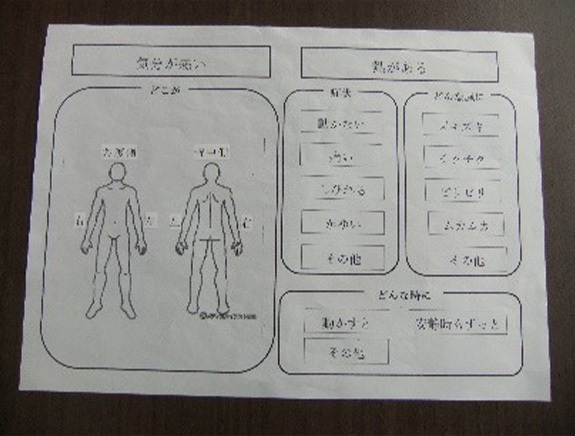 気分が悪い
熱がある
どこが
お腹側
背中側
右
左
左
右
症状
動かない
痛い
しびれる
かゆい
その他
どんな風に
ズキズキ
チクチク
ビリビリ
ムカムカ
その他
どんな時に
動かすと
安静時もずっと
その他